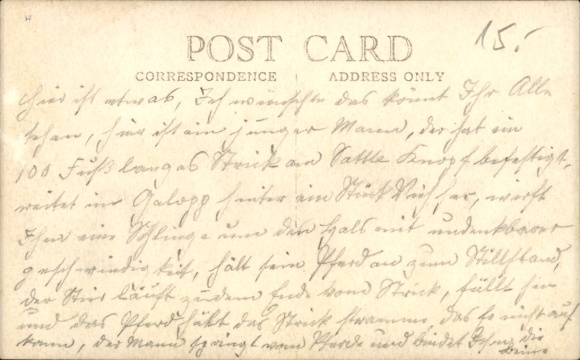 15.-
POST CARD
CORRESPONDENCE ADDRESS ONLY
Hier ist etwas, Ich wünschte das könnt Ihr Alle
sehen, hier ist ein junger Mann, der hat ein
100 Fuß langes Strick am Sattle Knopf befestigt,
reitet im Galopp hinter ein Stück Vieh her, wirft
Ihm eine Schlinge um den Hals mit undenkbarer
geschwindigkeit, hält sein Pferd an zum Stillstand,
der Stier läuft zu dem Ende vom Strick, fällt hin
und das Pferd hält das Strick stramm, das es nicht auf
kann, der Mann springt vom Pferde und bindet Ihm die
Beine